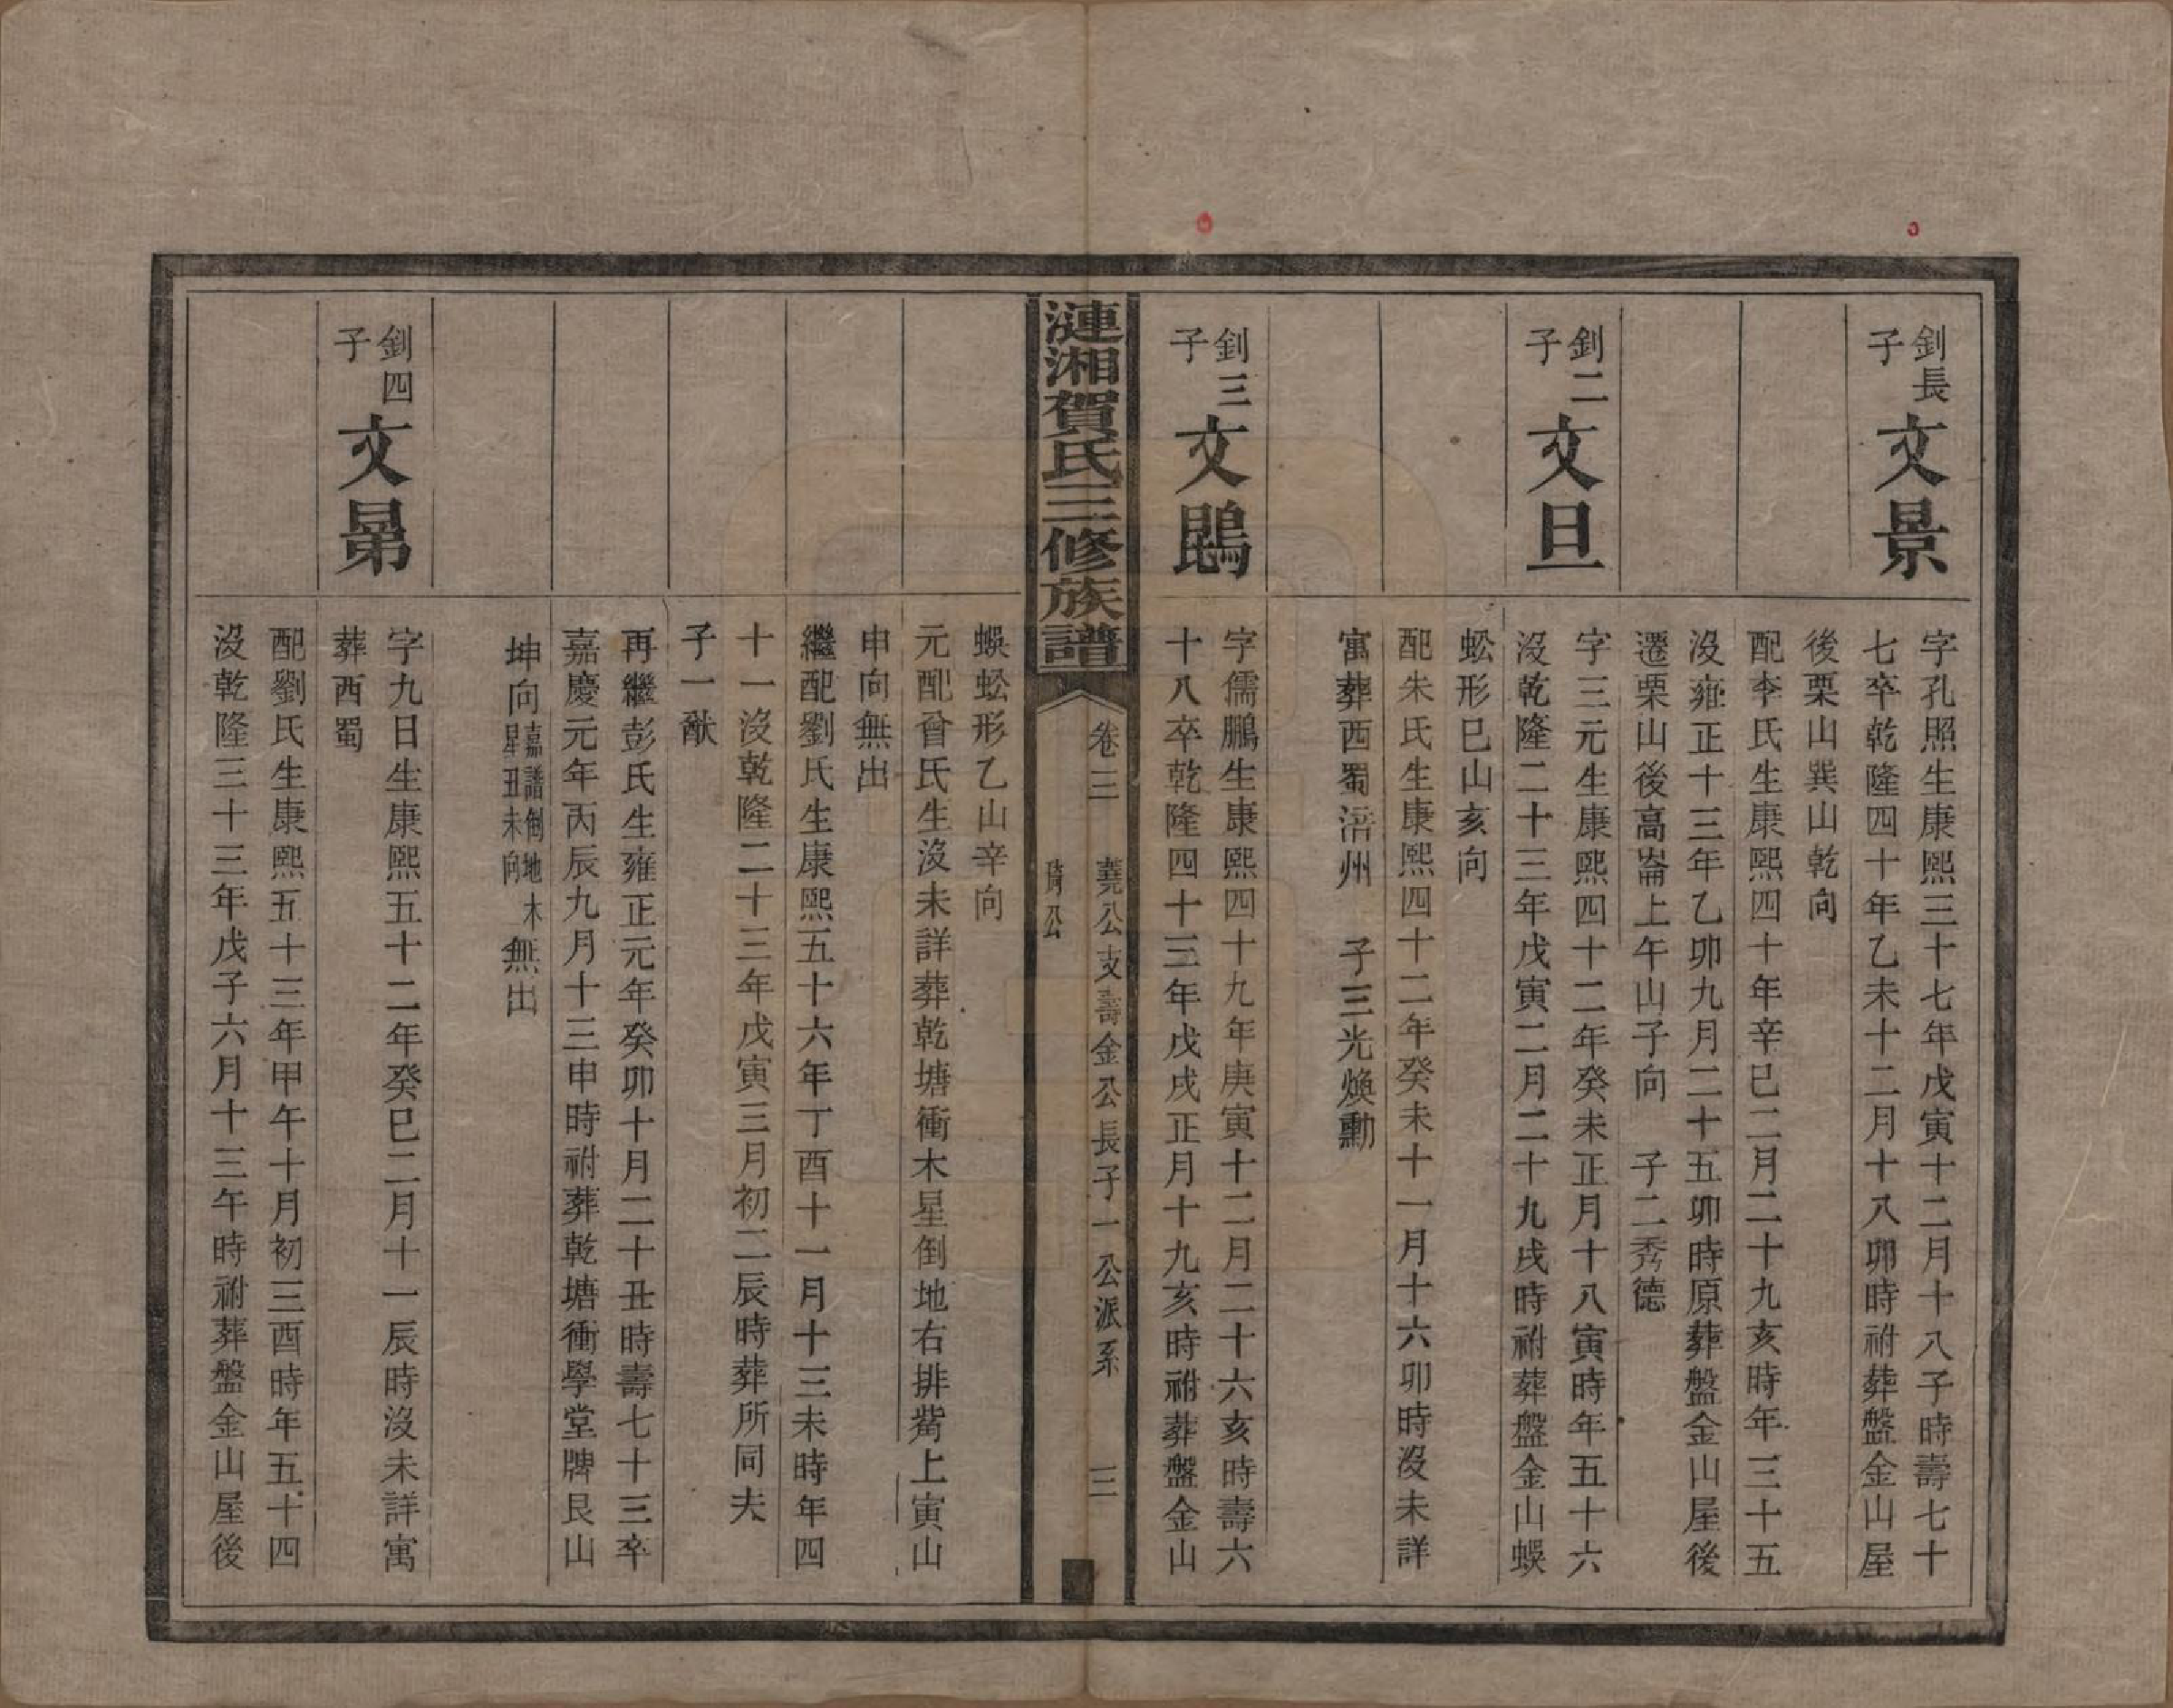 釗長子
文景
字孔照生康熙三十七年戊寅十二月十八子時壽七十
七卒乾隆四十年乙未十二月十八卯時祔葬盤金山屋
後栗山巽山乾向
配李氏生康熙四十年辛巳二月二十九亥時年三十五
沒雍正十三年乙卯九月二十五卯時原葬盤金山屋後
遷栗山後高崙上午山子向 子二秀德
釗二子
文旦
字三元生康熙四十二年癸未正月十八寅時年五十六
沒乾隆二十三年戊寅二月二十九戌時祔葬盤金山蜈
蚣形巳山亥向
配朱氏生康熙四十二年癸未十一月十六卯時沒未詳
寓葬西蜀涪州 子三光煥勳
釗三子
文鵾
字儒鵬生康熙四十九年庚寅十二月二十六亥時壽六
十八卒乾隆四十三年戊戌正月十九亥時祔葬盤金山
漣湘賀氏三修族譜
卷三
蕘公支壽金公長子一公派系
琦公
三
蜈蚣形乙山辛向
元配曾氏生沒未詳葬乾塘衝木星倒地右排觜上寅山
申向無出
繼配劉氏生康熙五十六年丁酉十一月十三未時年四
十一沒乾隆二十三年戊寅三月初二辰時葬所同夫
子一猷
再繼彭氏生雍正元年癸卯十月二十丑時壽七十三卒
嘉慶元年丙辰九月十三申時祔葬乾塘衝學堂牌艮山
坤向嘉譜倒地木星丑未向無出
釗四子
文㫕
字九日生康熙五十二年癸巳二月十一辰時沒未詳寓
葬西蜀
配劉氏生康熙五十三年甲午十月初三酉時年五十四
沒乾隆三十三年戊子六月十三午時祔葬盤金山屋後